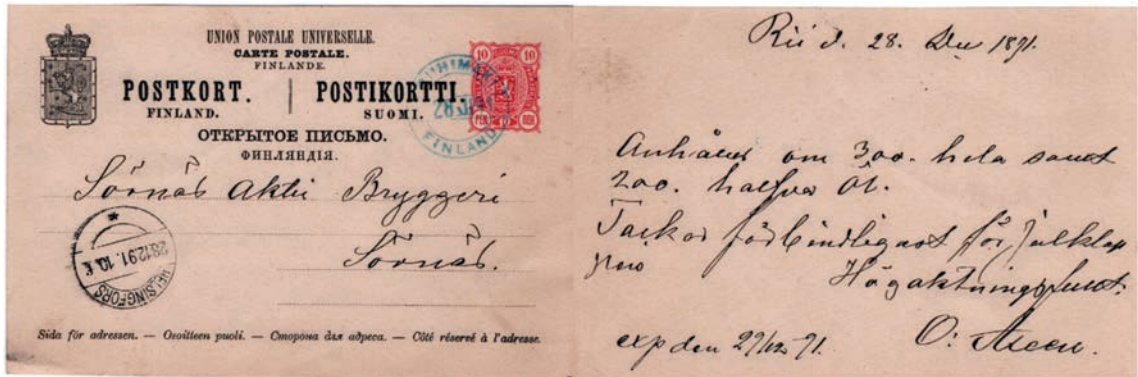 UNION POSTALE UNIVERSELLE.
CARTE POSTALE.
FINLANDE.
POSTKORT. | POSTIKORTTI.
FINLAND. SUOMI.
ОТКРЫТОЕ ПИСЬМО.
ФИНЛЯНДІЯ.
10 10
10 PEN. 10
FINLAND
Sörnäs Aktie Bryggeri
Sörnäs.
28.12.91. 10. F.
HELSINGFORS
Sida för adressen. — Osoitteen puoli. — Сторона для адреса. — Côté réservé à l'adresse.
d. 28. Dec 1891.
Anhåller om 300. hela samt
200. halfva Öl.
Tackar förbindligast för julklap
pen
Högaktningsfullt.
exp den 29/12 91. O: